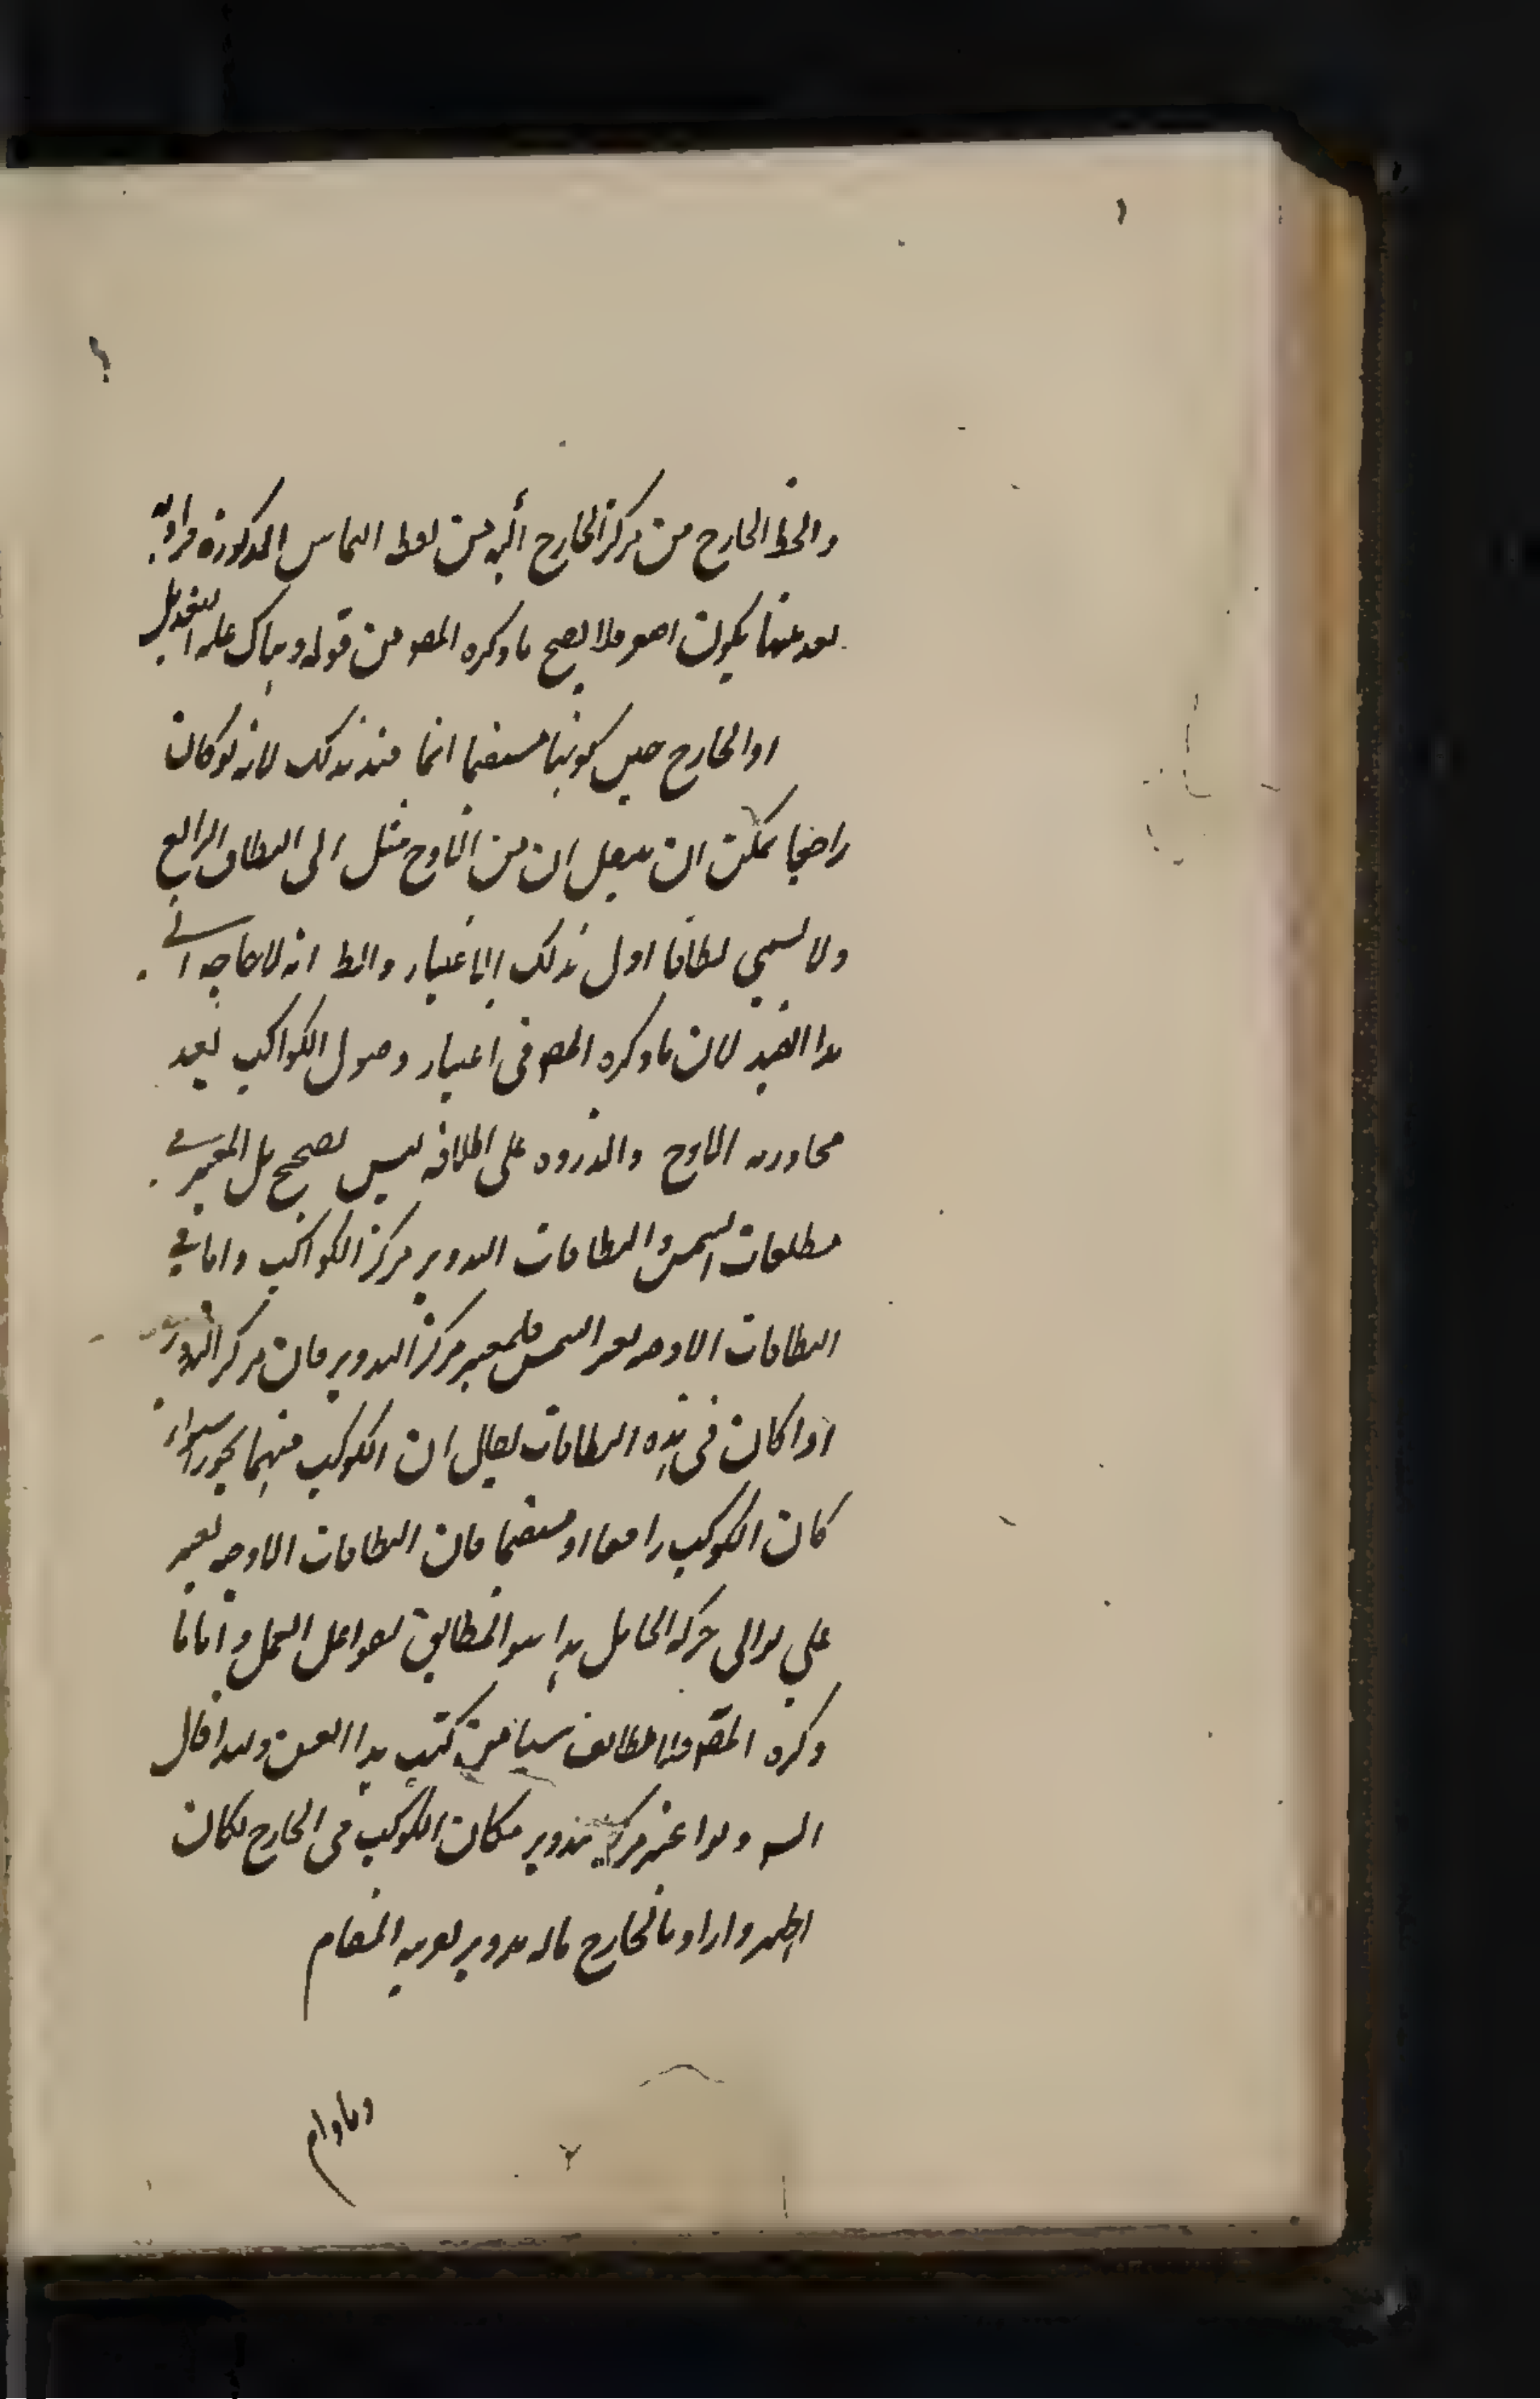 والخط الخارج من مركز الخارج أليه من نقطه التماس المذكورة فزاويه
بعد عنها يكون اصغر فلا يصح ما ذكره المص من قوله وهناك عله التعديل
او الخارج حين كونها مستقيما انما قيد بذلك لانه لو كان
راجعا يمكن ان ينتقل ان من الاوج مثل الى النطاق الرابع
ولا يسمي نطاقا اول بذلك الاعتبار والظ انه لا حاجه الى
هذا القيد لان ما ذكره المص فى اعتبار وصول الكواكب بعد
مجاوزته الاوج والذروه على اطلاقه ليس بصحيح بل المعتبر في
نطاقات الشمس والنطاقات التدوير مركز الكواكب واما في
النطاقات الاوجيه لغير الشمس فلمعتبر مركز التدوير فان مركز التدوير
اذا كان فى هذه النطاقات يقال ان الكوكب فيهما تجوزا سواء
كان الكوكب راجعا او مستقيما فان النطاقات الاوجيه تعتبر
على توالى حركة الحامل هذا هو المطابق لقواعد العمل واما ما
ذكره المص فلا يطابق شيئا من كتب هذا الفن ولهذا قال
الش ولو اعتبر مركز تدوير مكان الكوكب فى الخارج لكان
اظهر واراد بالخارج ماله تدوير بقرينه المقام
وما دام